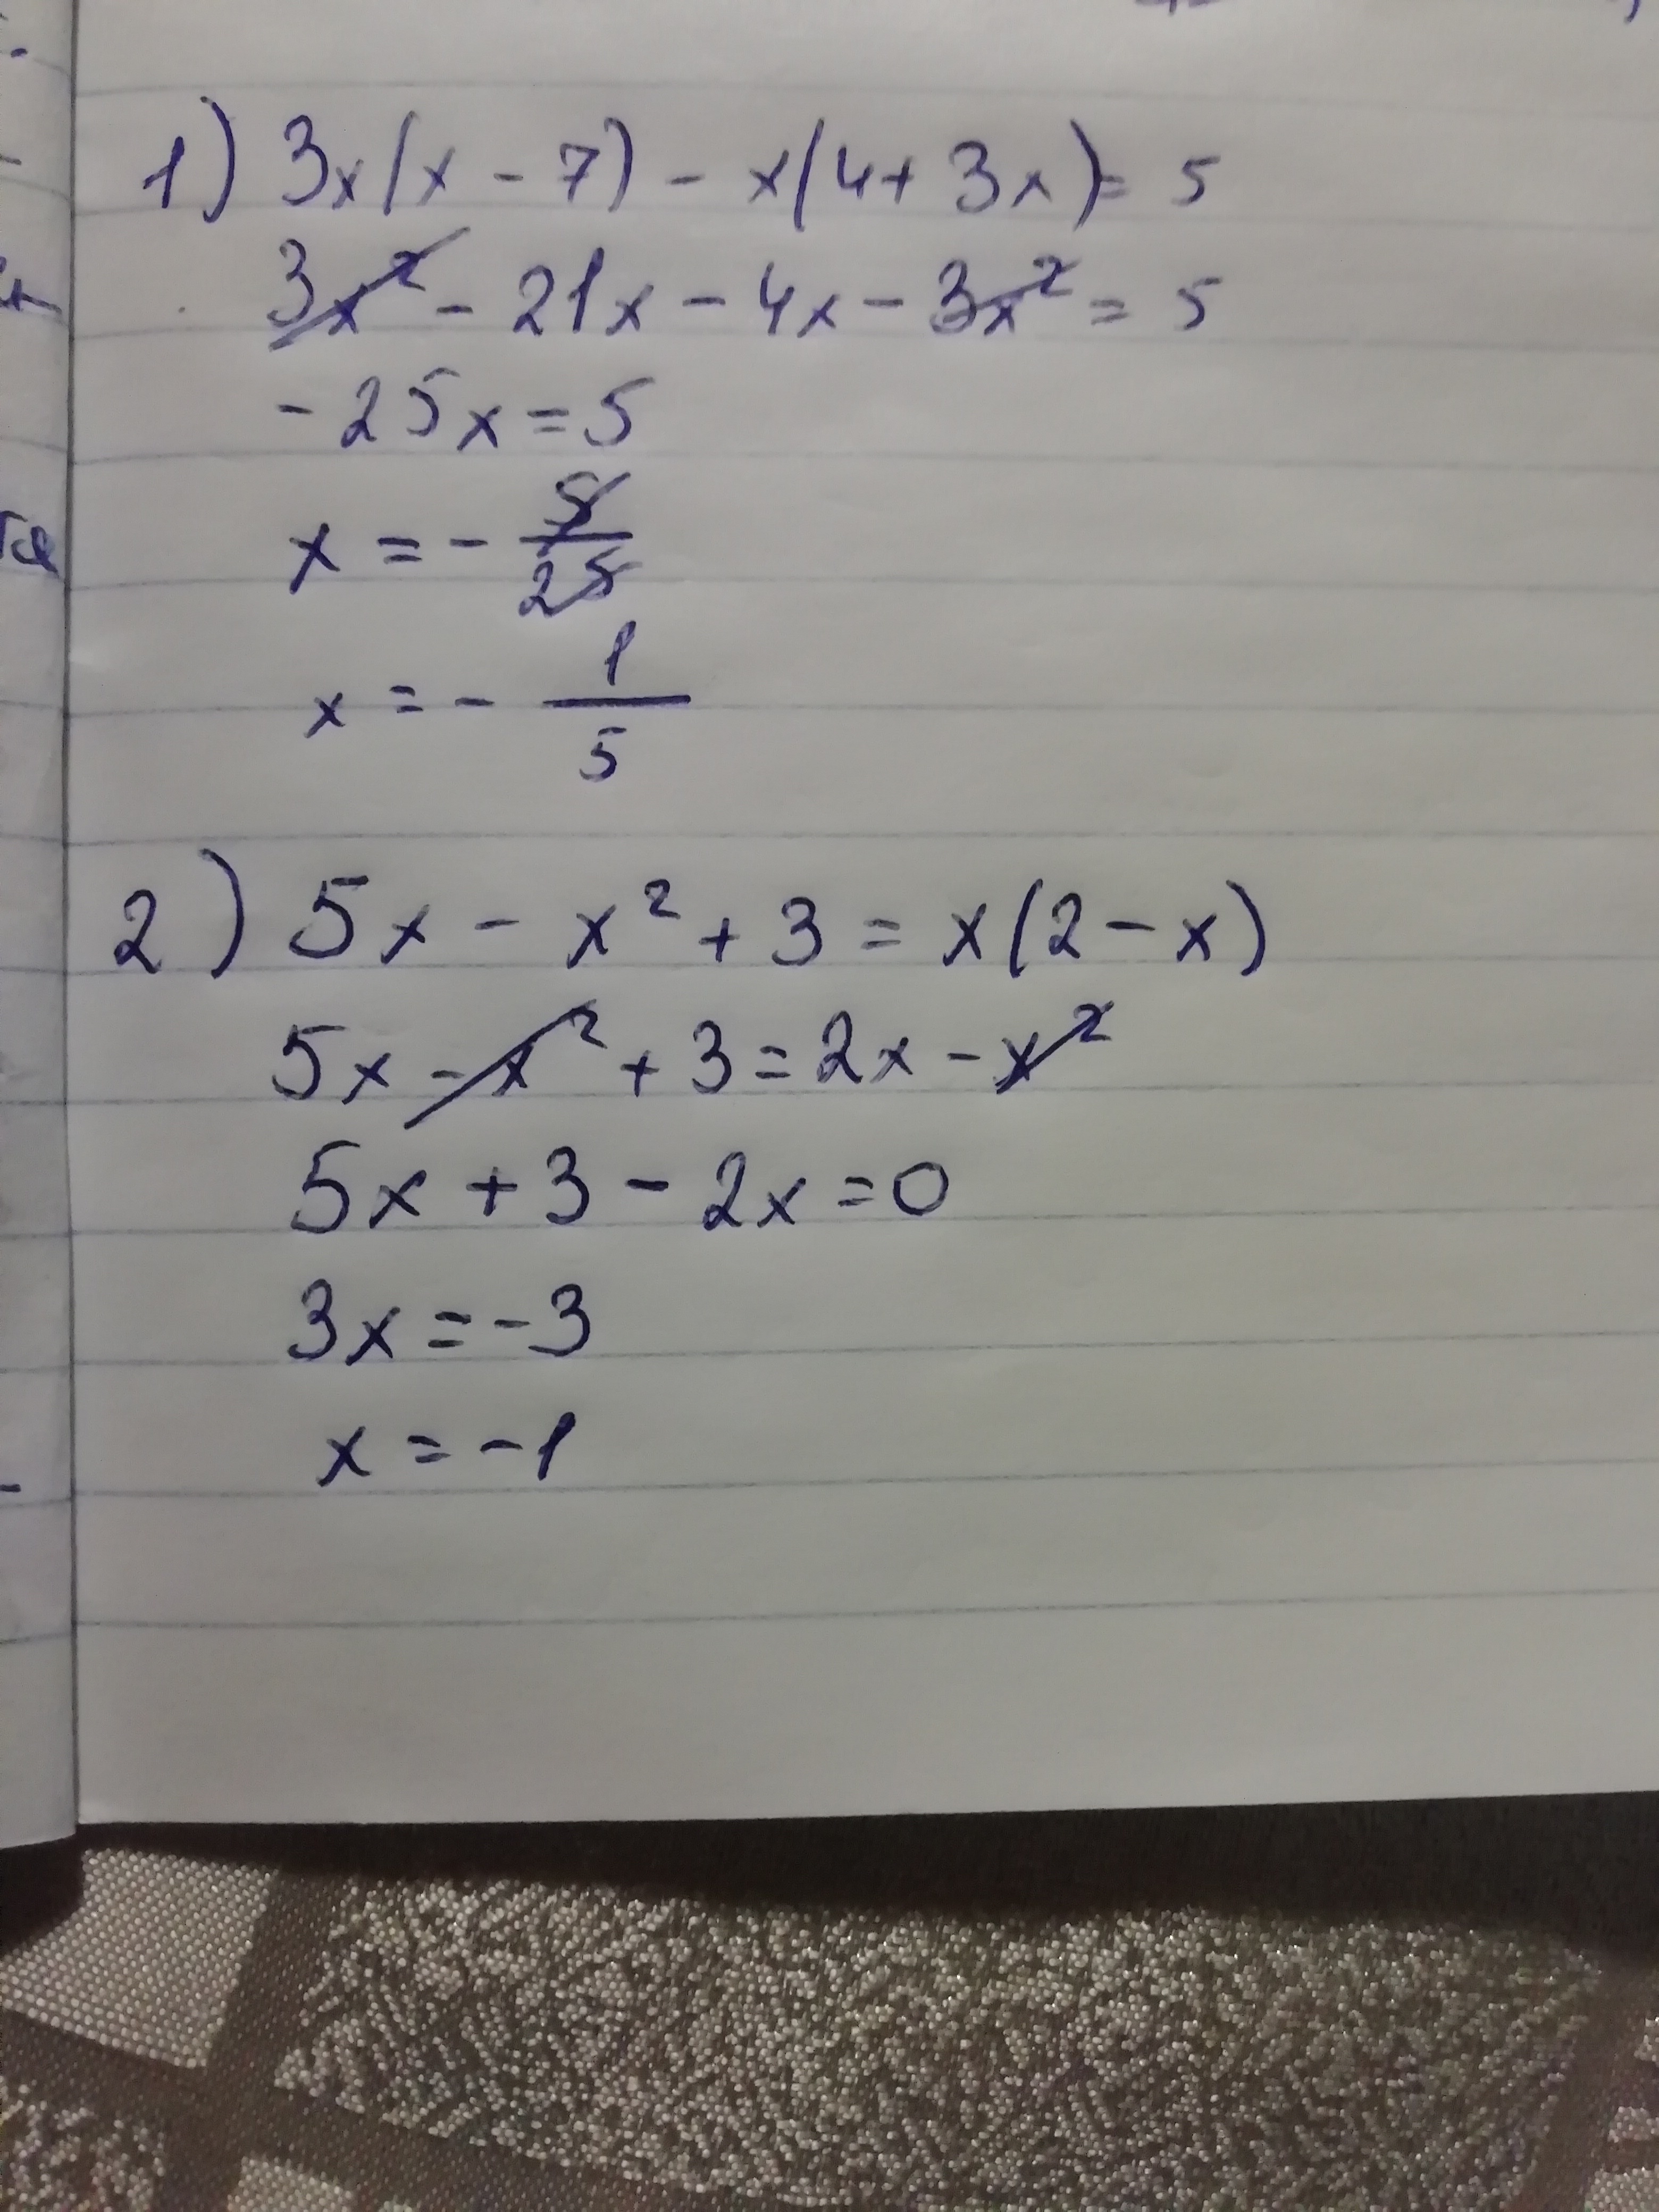 1) 3x(x - 7) - x(4 + 3x) = 5
3x² - 21x - 4x - 3x² = 5
-25x = 5
x = - 5/25
x = - 1/5
2) 5x - x² + 3 = x(2 - x)
5x - x² + 3 = 2x - x²
5x + 3 - 2x = 0
3x = -3
x = -1